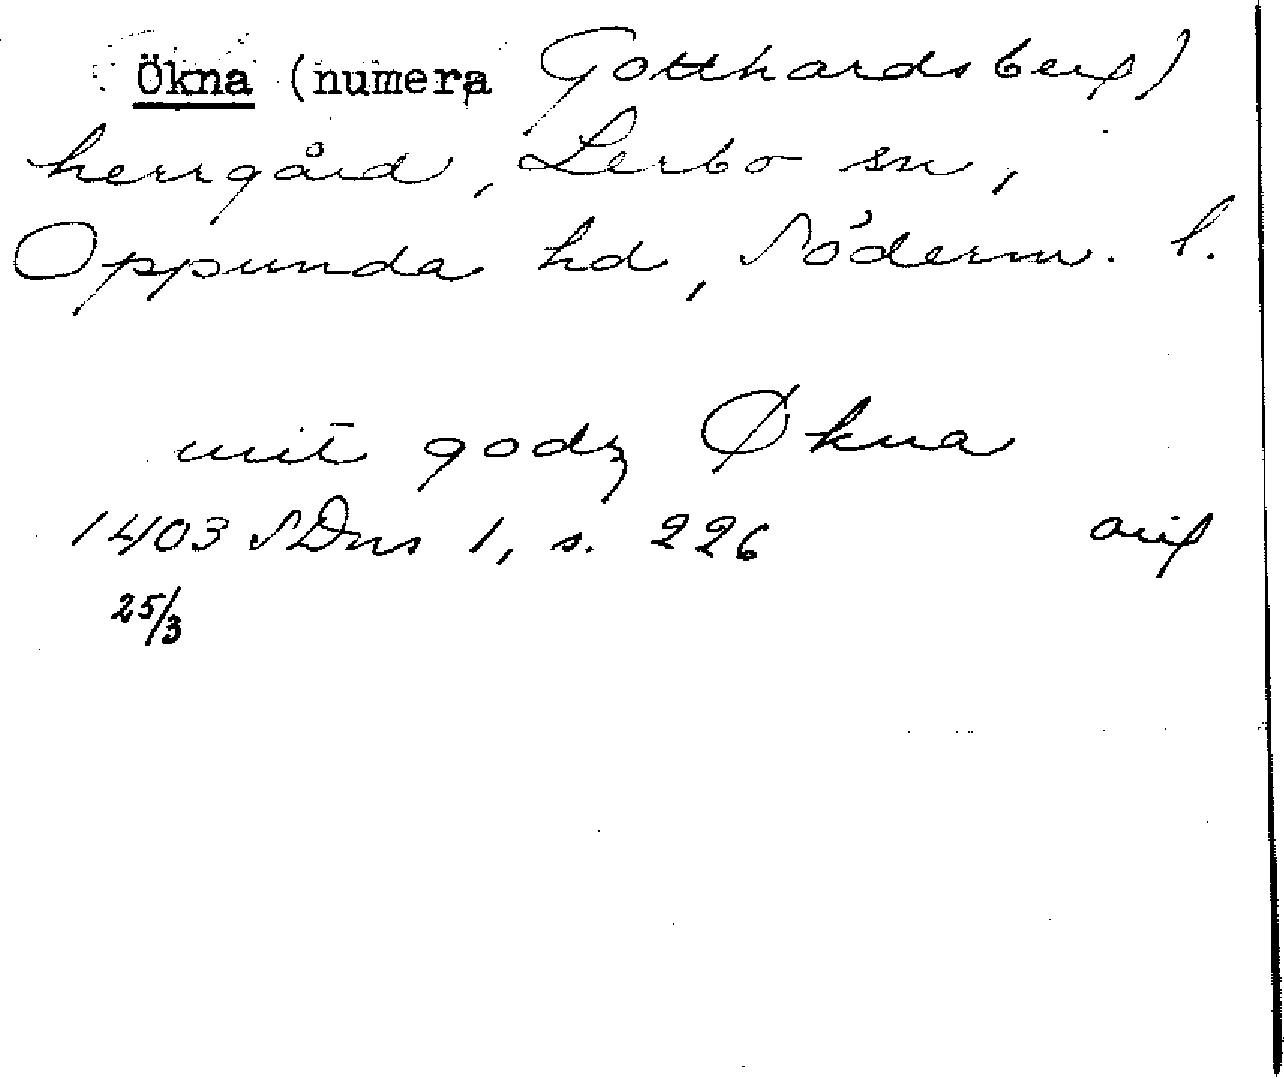 Ökna (numera Gotthardsberg)
herrgård, Lerbo sn,
Oppunda hd, Söderm. l.
mit godz Økna
1403 SDns 1, s. 226 orig
25/3